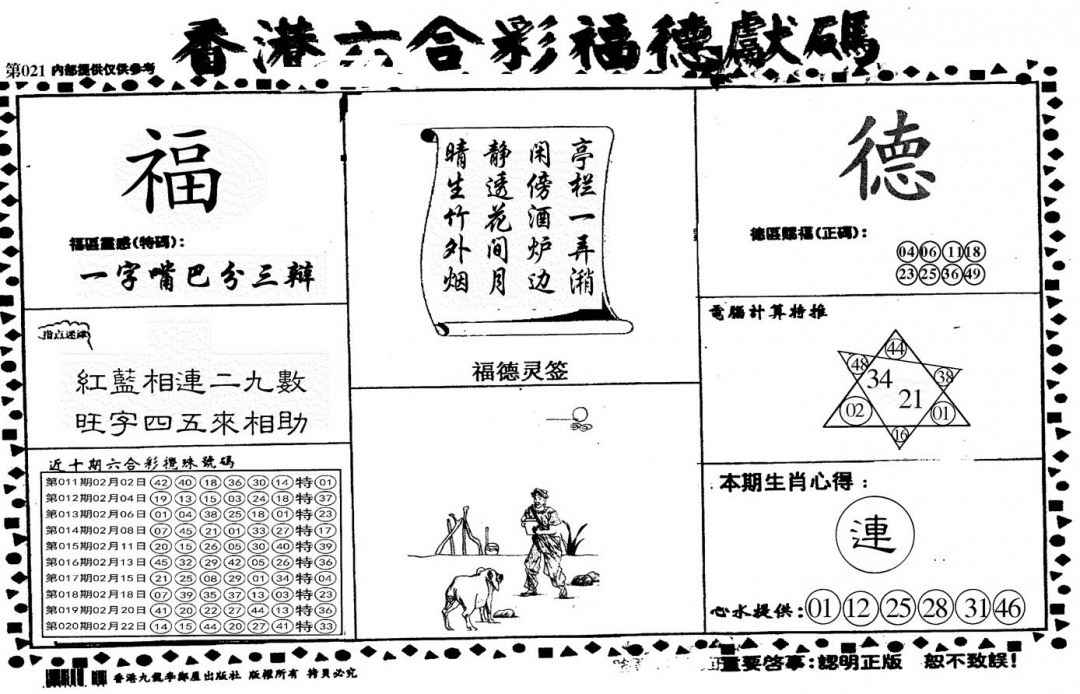 香港六合彩福德獻碼
第021 內部提供仅供參考
福
福區靈感(特碼):
一字嘴巴分三辩
指点迷津
紅藍相連二九數
旺字四五來相助
近十期六合彩攪珠號碼
第011期02月02日 42 40 18 36 30 14 特 01
第012期02月04日 19 13 15 03 24 18 特 37
第013期02月06日 01 04 38 25 18 01 特 23
第014期02月08日 07 45 21 01 33 27 特 17
第015期02月11日 20 15 26 05 30 40 特 39
第016期02月13日 45 32 29 42 05 26 特 36
第017期02月15日 21 25 08 29 01 34 特 04
第018期02月18日 07 39 35 37 13 03 特 23
第019期02月20日 41 20 22 27 44 13 特 36
第020期02月22日 14 15 44 20 27 41 特 33
亭栏一弄潲
闲傍酒炉边
静透花间月
晴生竹外烟
福德灵签
德
德區賜福(正碼):
04 06 11 18
23 25 36 49
電腦計算特推
44
48 38
34
21
02 01
16
本期生肖心得:
連
心水提供: 01 12 25 28 31 46
香港九龍李鄭屋出版社 版權所有 拷貝必究
重要啓事:認明正版 恕不致誤!